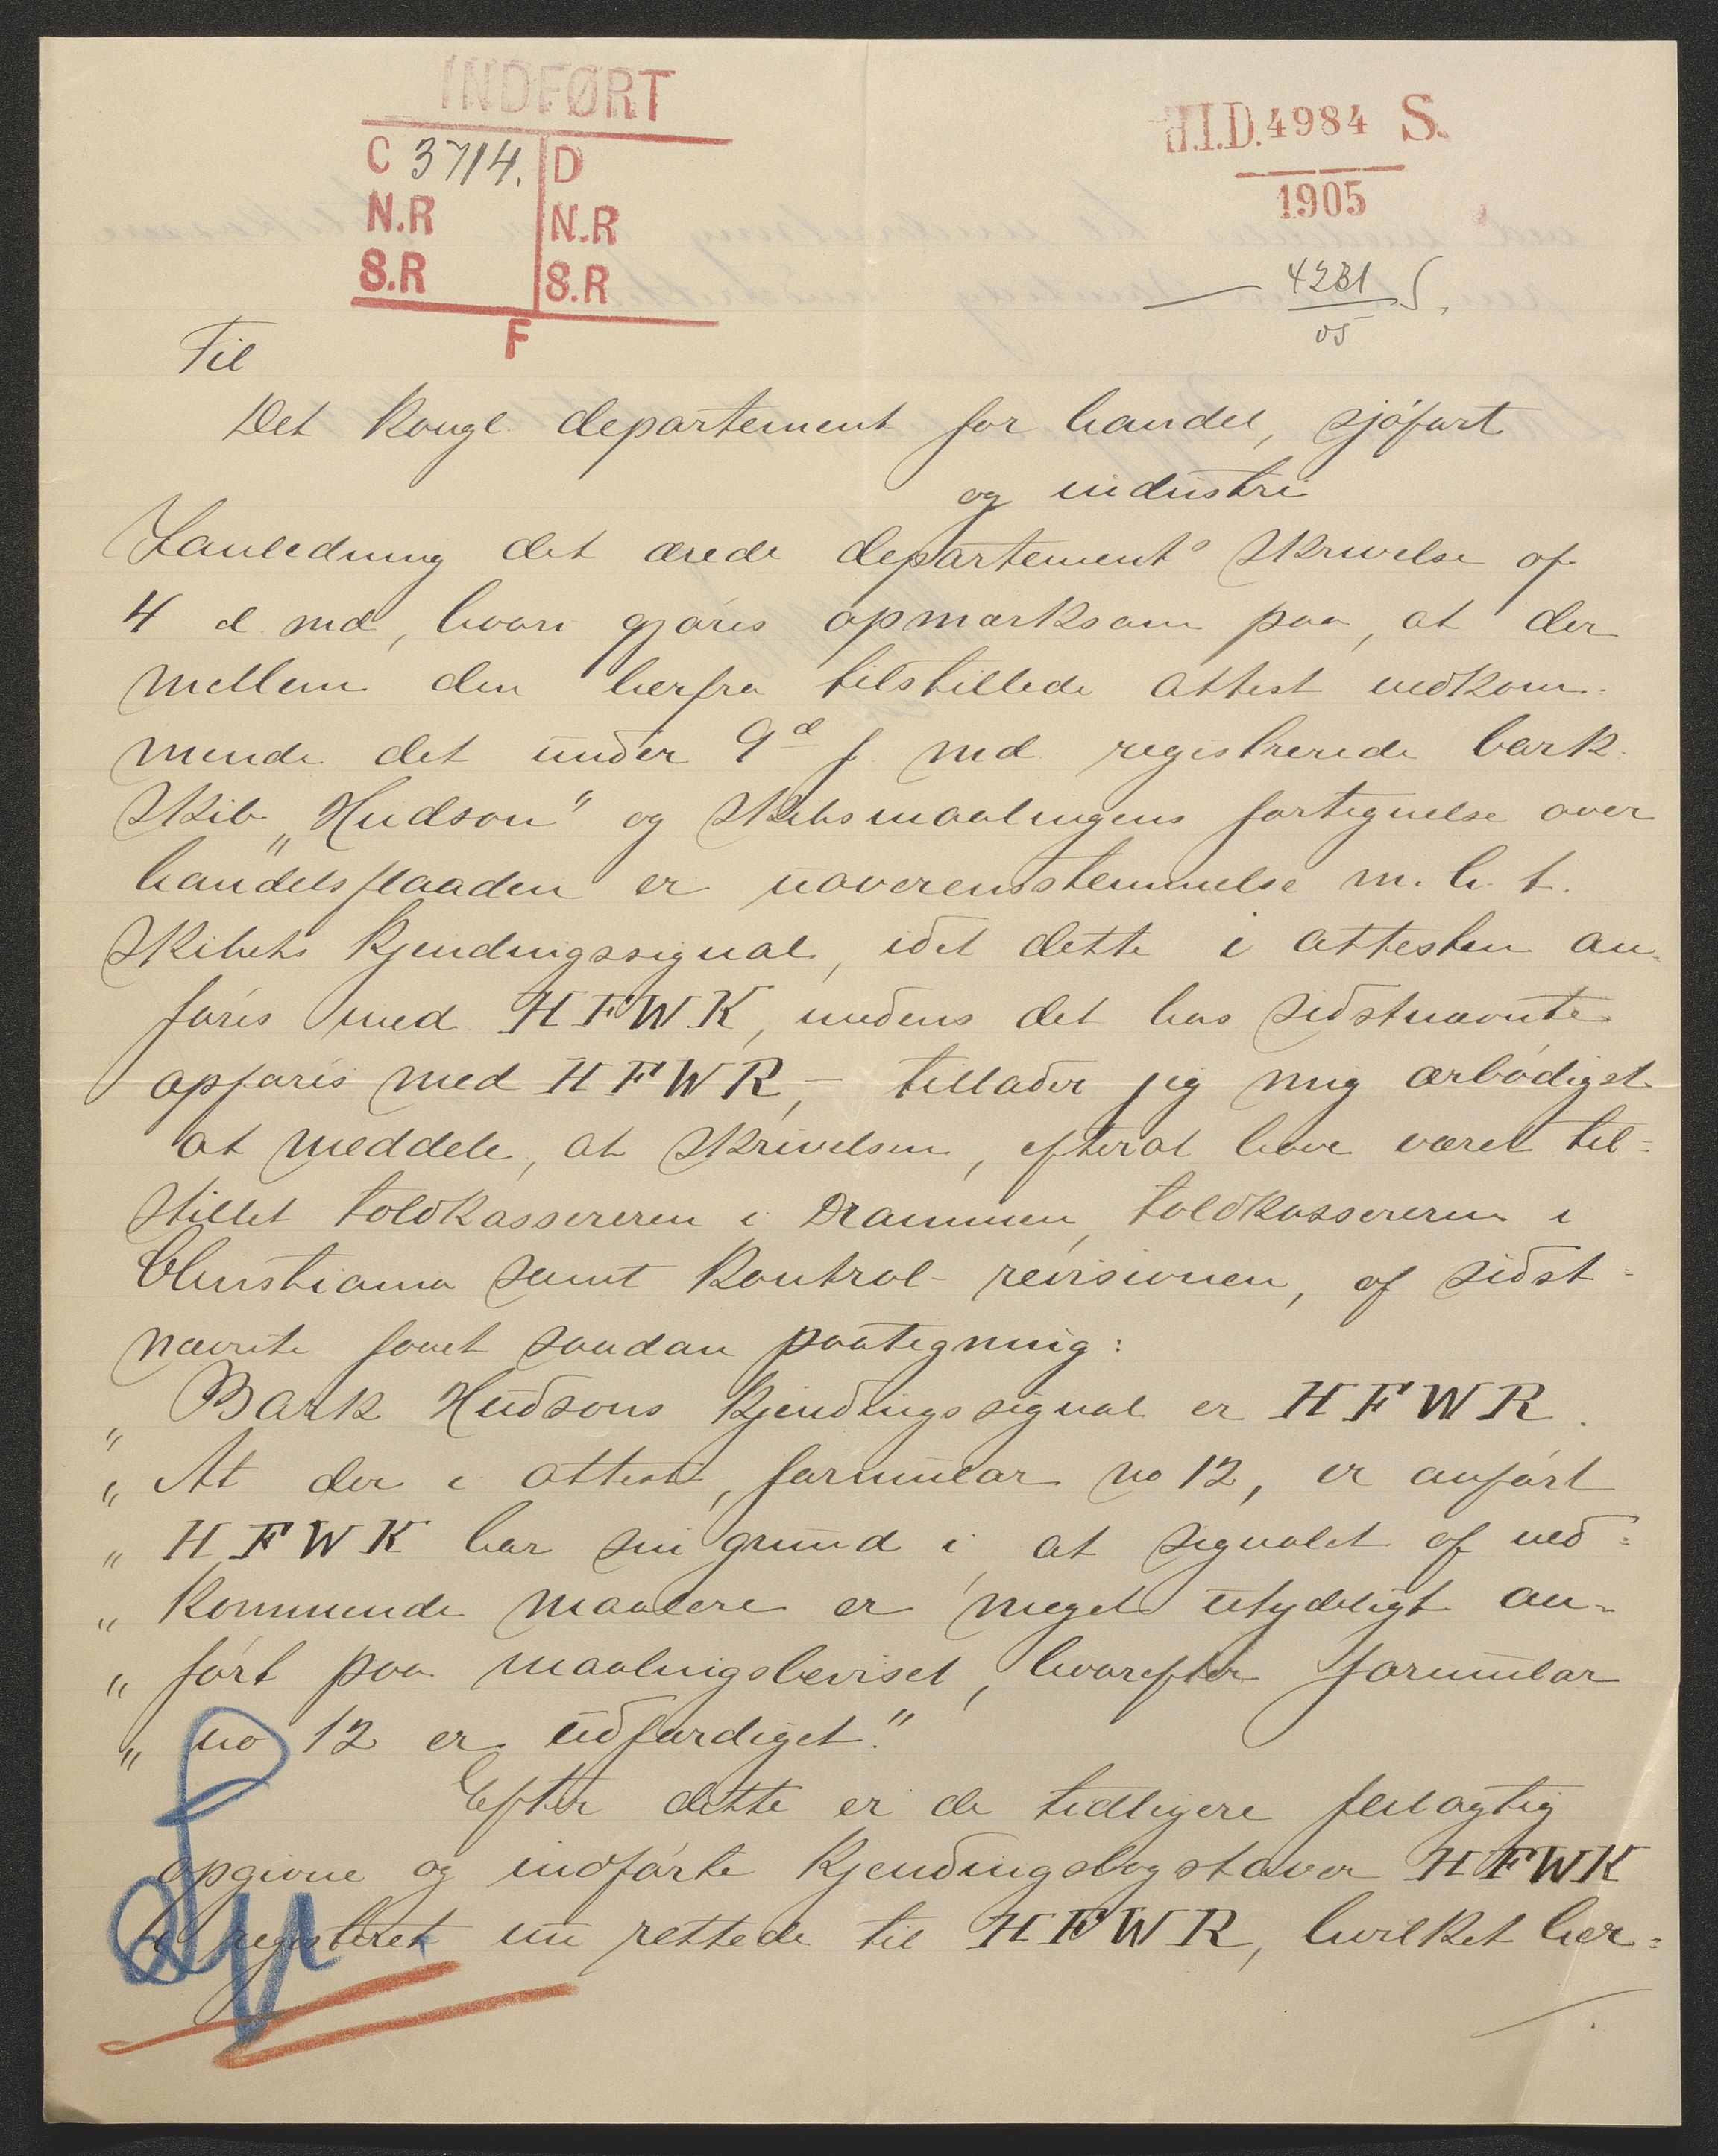 INDFØRT
C 3714. D
N.R N.R
S.R S.R
F
H.I.D. 4984 S.
1905
4231 S.
05
Til
Det kongl. departement for handel, sjøfart
og industri
I anledning det ærede departements skrivelse af
4 d. md, hvori gjøres opmærksom paa, at der
mellem den herfra tilstillede attest vedkom-
mende det under 9d f. md registrerede bark-
skib „Hudson" og skibsmaalingens fortegnelse over
handelsflaaden er uoverensstemmelse m. h. t.
skibets kjendingssignal, idet dette i attesten an-
føres med HFWK, medens det hos sidstnævnte
opføres med HFWR, - tillader jeg mig ærbødigst
at meddele, at skrivelsen, efterat have været til-
stillet toldkassereren i Drammen, toldkassereren i
Christiania samt kontrol-revisionen, af sidst-
nævnte faaet saadan paategning:
„ Bark Hudsons kjendingssignal er HFWR.
„ At der i attest, formular no 12, er anført
„ HFWK har sin grund i, at signalet af ved-
„ kommende maalere er meget utydeligt an-
„ ført paa maalingsbeviset, hvorefter formular
„ no 12 er udfærdiget."
Efter dette er de tidligere feilagtig
opgivne og indførte kjendingsbogstaver HFWK
i registeret nu rettede til HFWR, hvilket her-